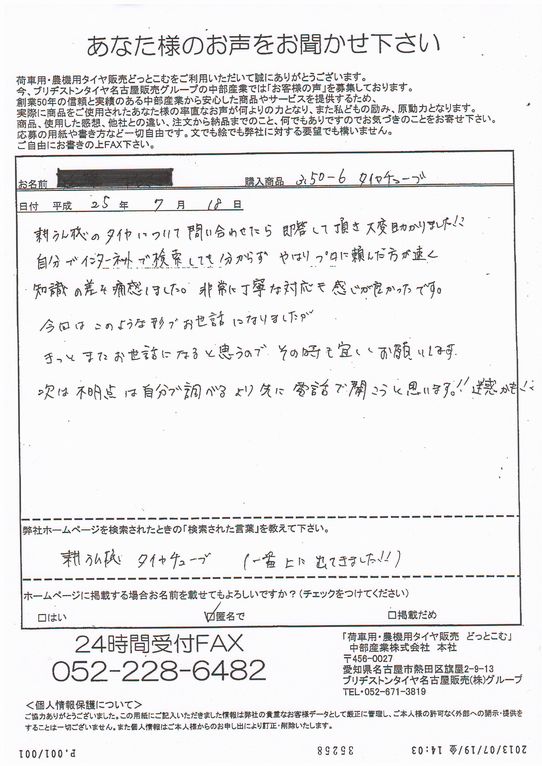 あなた様のお声をお聞かせ下さい
荷車用・農機用タイヤ販売どっとこむをご利用いただいて誠にありがとうございます。
今、ブリヂストンタイヤ名古屋販売グループの中部産業では「お客様の声」を募集しております。
創業50年の信頼と実績のある中部産業から安心した商品やサービスを提供するため、
実際に商品をご使用されたあなた様の率直なお声が何よりの力となり、また私どもの励み、原動力となります。
商品、使用した感想、他社との違い、注文から納品までのこと、何でもありですのでお気づきのことをお寄せ下さい。
応募の用紙や書き方など一切自由です。文でも絵でも弊社に対する要望でも構いません。
ご自由にお書きの上FAX下さい。
お名前 購入商品 3.50-6 タイヤチューブ
日付 平成 25 年 7 月 18 日
耕うん機のタイヤについて問い合わせたら 即答して頂き大変助かりました!!
自分でインターネットで検索しても分からず やはりプロに頼んだ方が速く
知識の差を痛感しました。非常に丁寧な対応も感じが良かったです。
今回はこのような形でお世話になりましたが
きっとまたお世話になると思うので その時も宜しくお願いします.
次は不明点は自分で調べるより先に電話で聞こうと思います。!!迷惑かも!!
弊社ホームページを検索されたときの「検索された言葉」を教えて下さい。
耕うん機 タイヤチューブ (一番上に出てきました!!)
ホームページに掲載する場合お名前を載せてもよろしいですか?(チェックをつけてください)
□はい ☑匿名で □掲載だめ
24時間受付FAX
052-228-6482
「荷車用・農機用タイヤ販売 どっとこむ」
中部産業株式会社 本社
〒456-0027
愛知県名古屋市熱田区旗屋2-9-13
ブリヂストンタイヤ名古屋販売(株)グループ
TEL・052-671-3819
<個人情報保護について>
ご協力ありがとうございました。この用紙にご記入いただきました情報は弊社の貴重なお客様データとして厳正に管理し、ご本人様の許可なく外部への開示・提供を
することは一切ございません。また個人情報はご本人様からのお申し出により訂正・削除いたします。
2013/07/19/金 14:03 35258 P.001/001